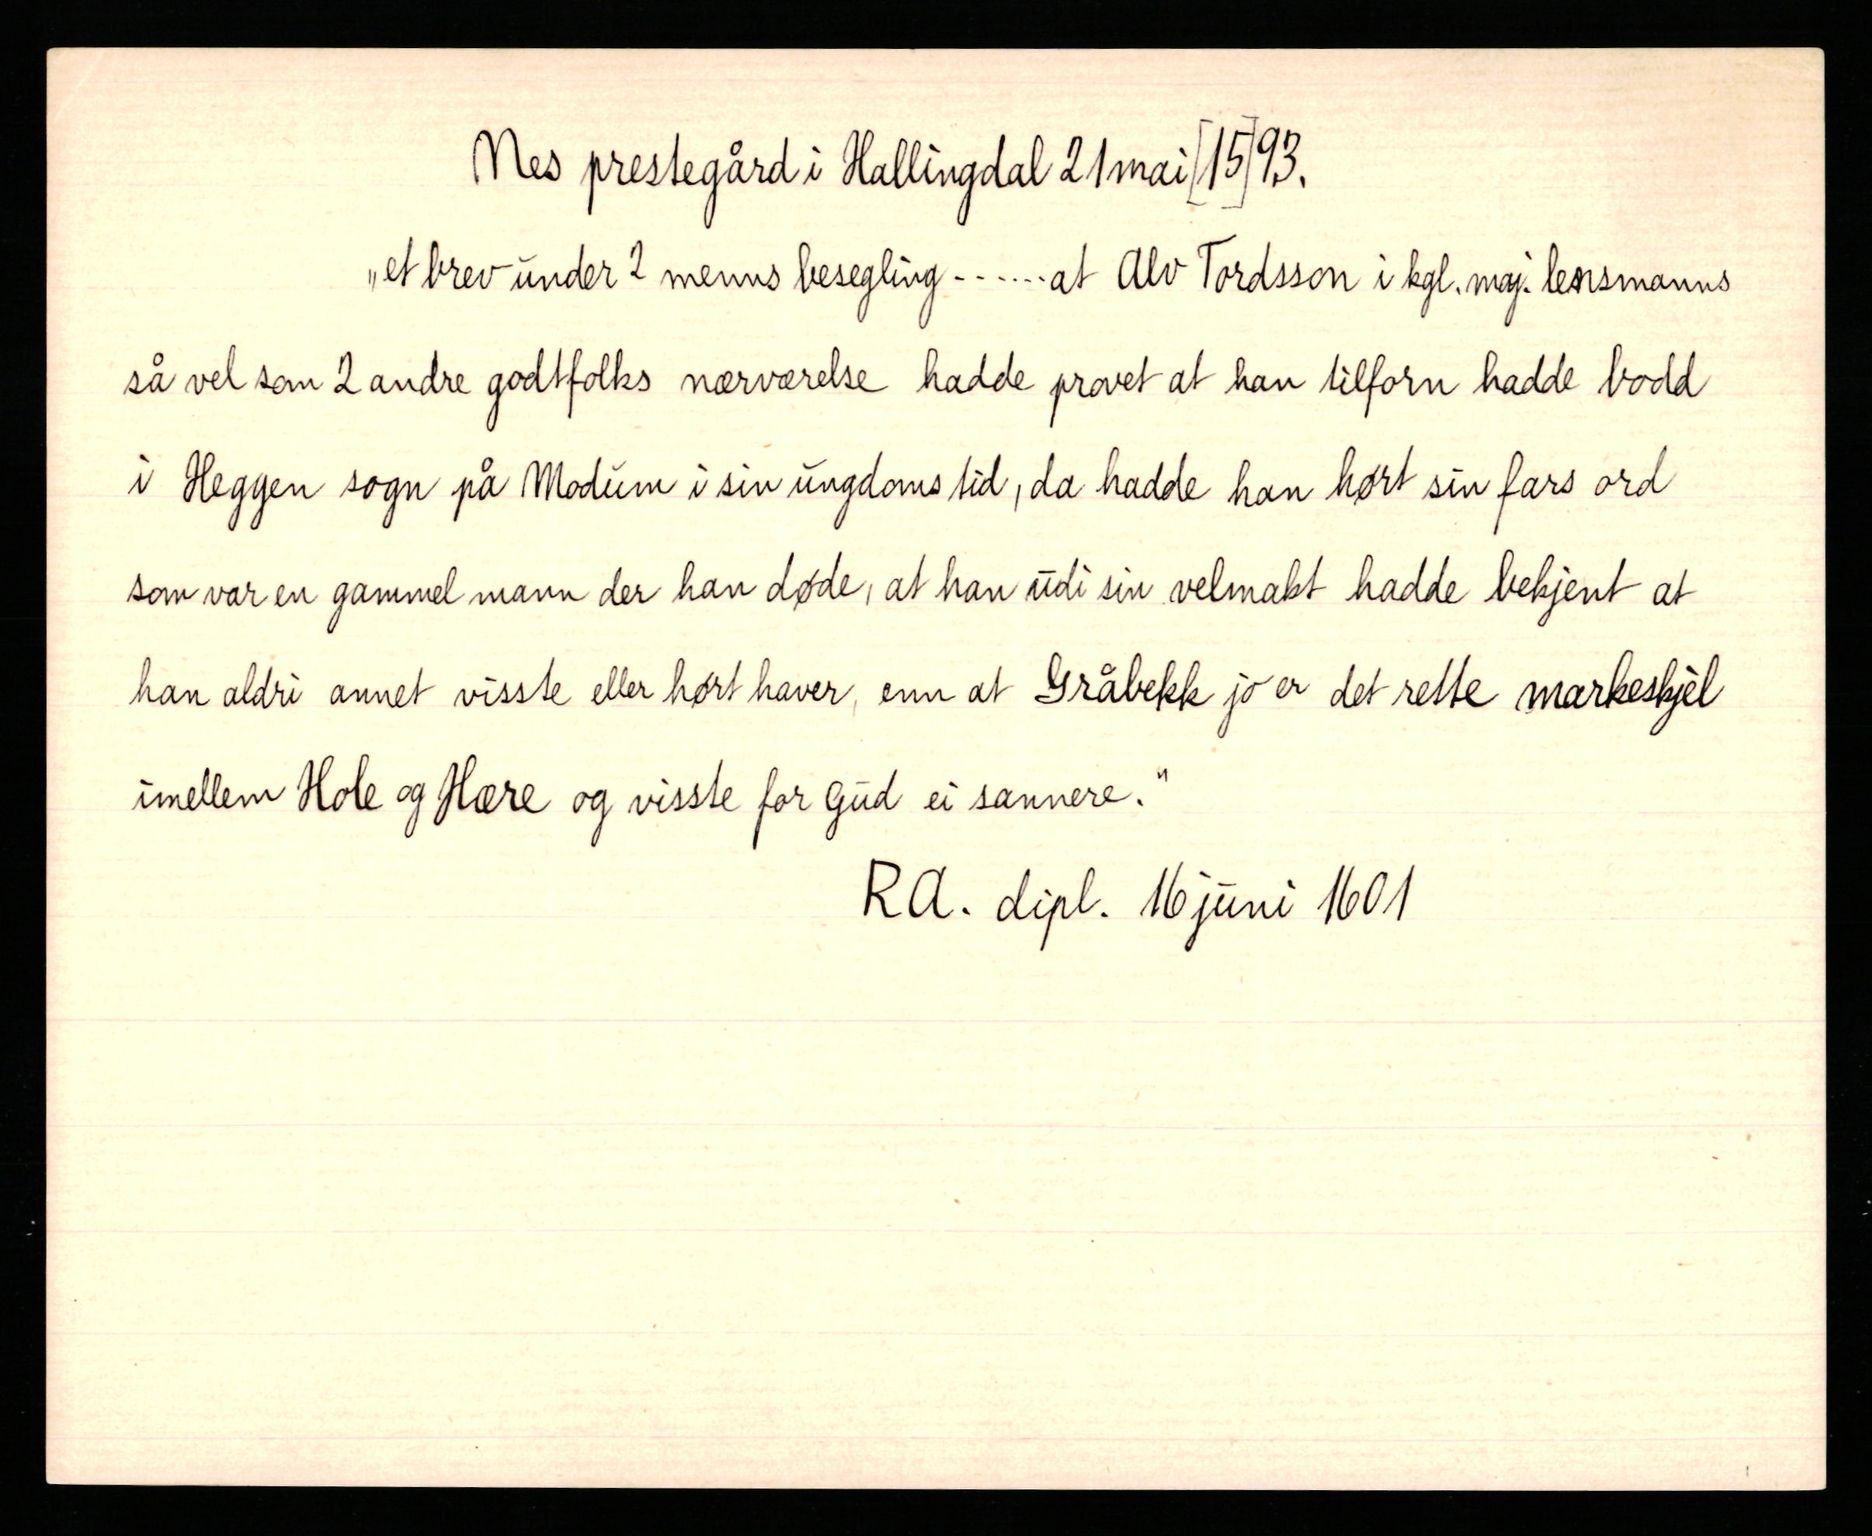 Nes prestegård i Hallingdal 21 mai [15]93.
„et brev under 2 menns besegling - - ..... at Alv Tordsson i kgl. maj. lensmanns
så vel som 2 andre godtfolks nærværelse hadde provet at han tilforn hadde bodd
i Heggen sogn på Modum i sin ungdoms tid, da hadde han hørt sin fars ord
som var en gammel mann der han døde, at han udi sin velmakt hadde bekjent at
han aldri annet visste eller hørt haver, enn at Gråbekk jo er det rette markeskjel
imellem Hole og Hære og visste for Gud ei sannere."
RA. dipl. 16 juni 1601